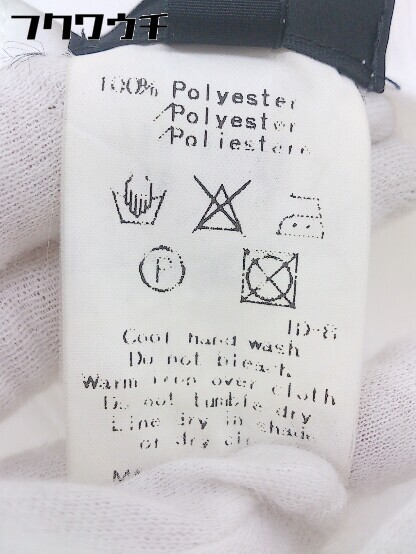 フクワウチ
100% Polyester
/Polyester
/Poliestere
P
Cool hand wash
Do not bleach
Warm iron over cloth
Do not tumble dry
Line dry in shade
or dry